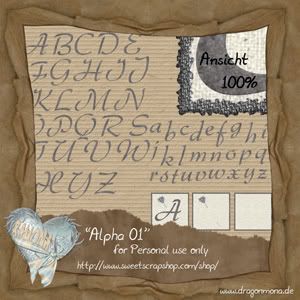 A B C D E
F G H I J
K L M N
O P Q R S a b c d e f g h i
T U V W j k l m n o p q
X Y Z r s t u v w x y z
Ansicht
100%
A
"Alpha 01"
for Personal use only
http://www.sweetscrapshop.com/shop/
www.dragonmona.de